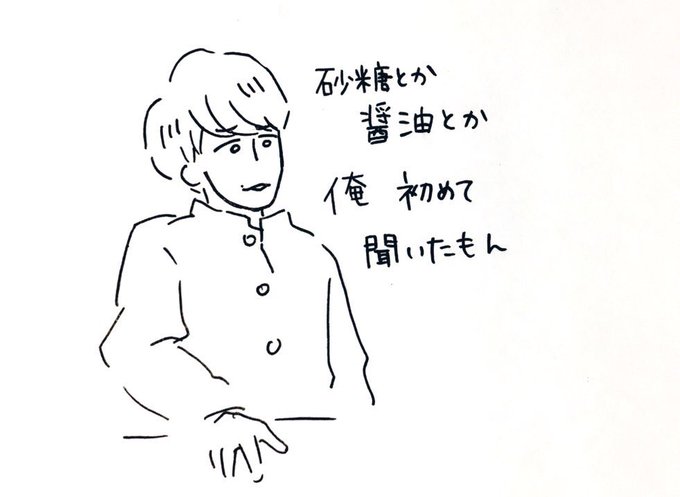 砂糖とか
醤油とか
俺 初めて
聞いたもん